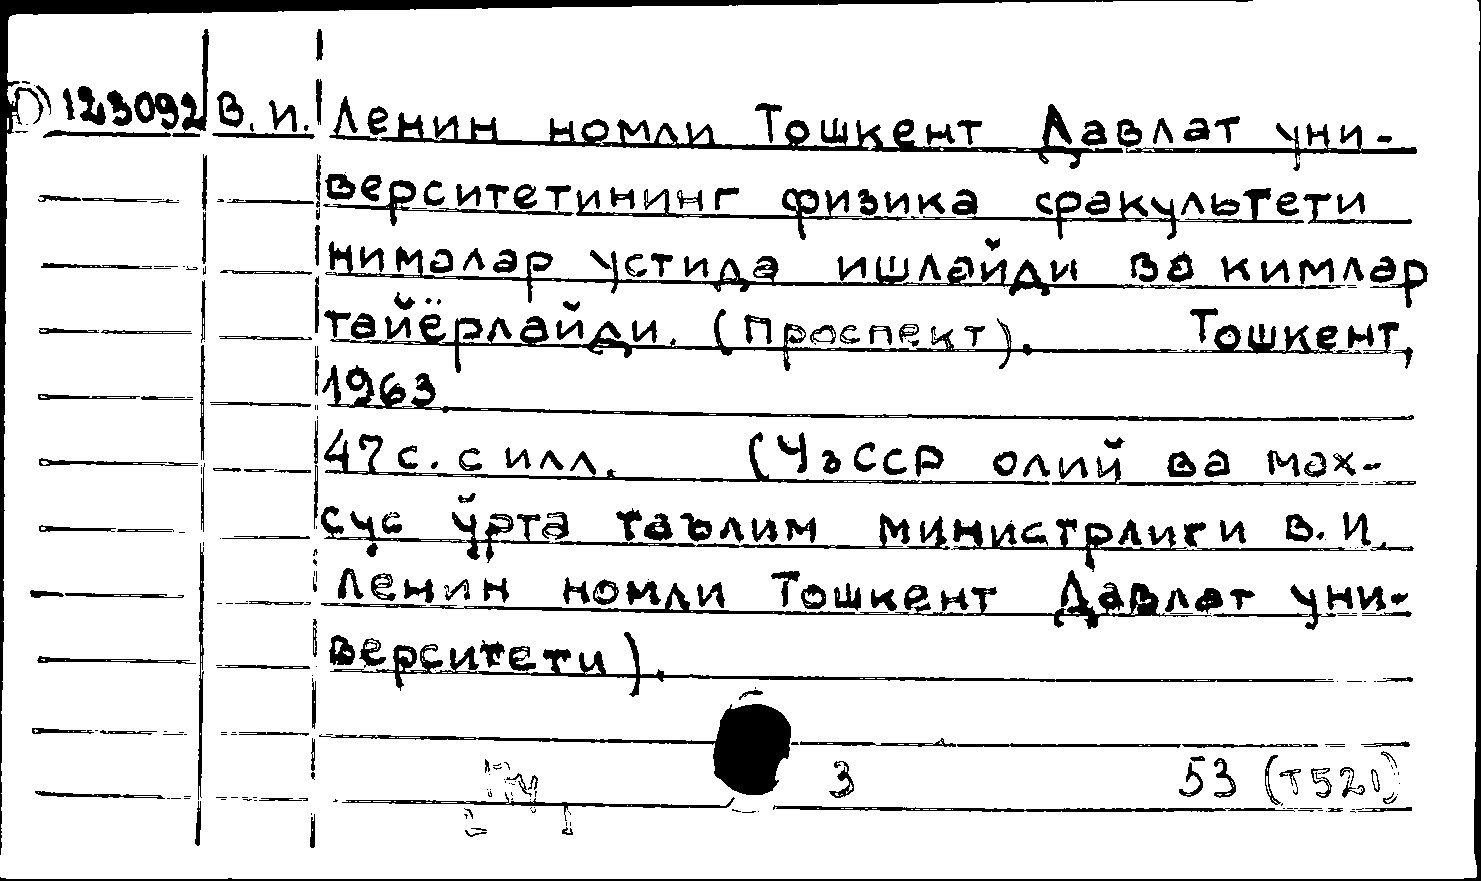 Ю 123092 В. И. Ленин номли Тошкент Давлат уни-
верситетининг физика факультети
нималар устида ишлайди ва кимлар
тайёрлайди. (Проспект). Тошкент,
1963
47 с. с илл. (ЎзССР олий ва мах-
сус ўрта таълим министрлиги В. И.
Ленин номли Тошкент Давлат уни-
верситети).
3 53 (Т521)